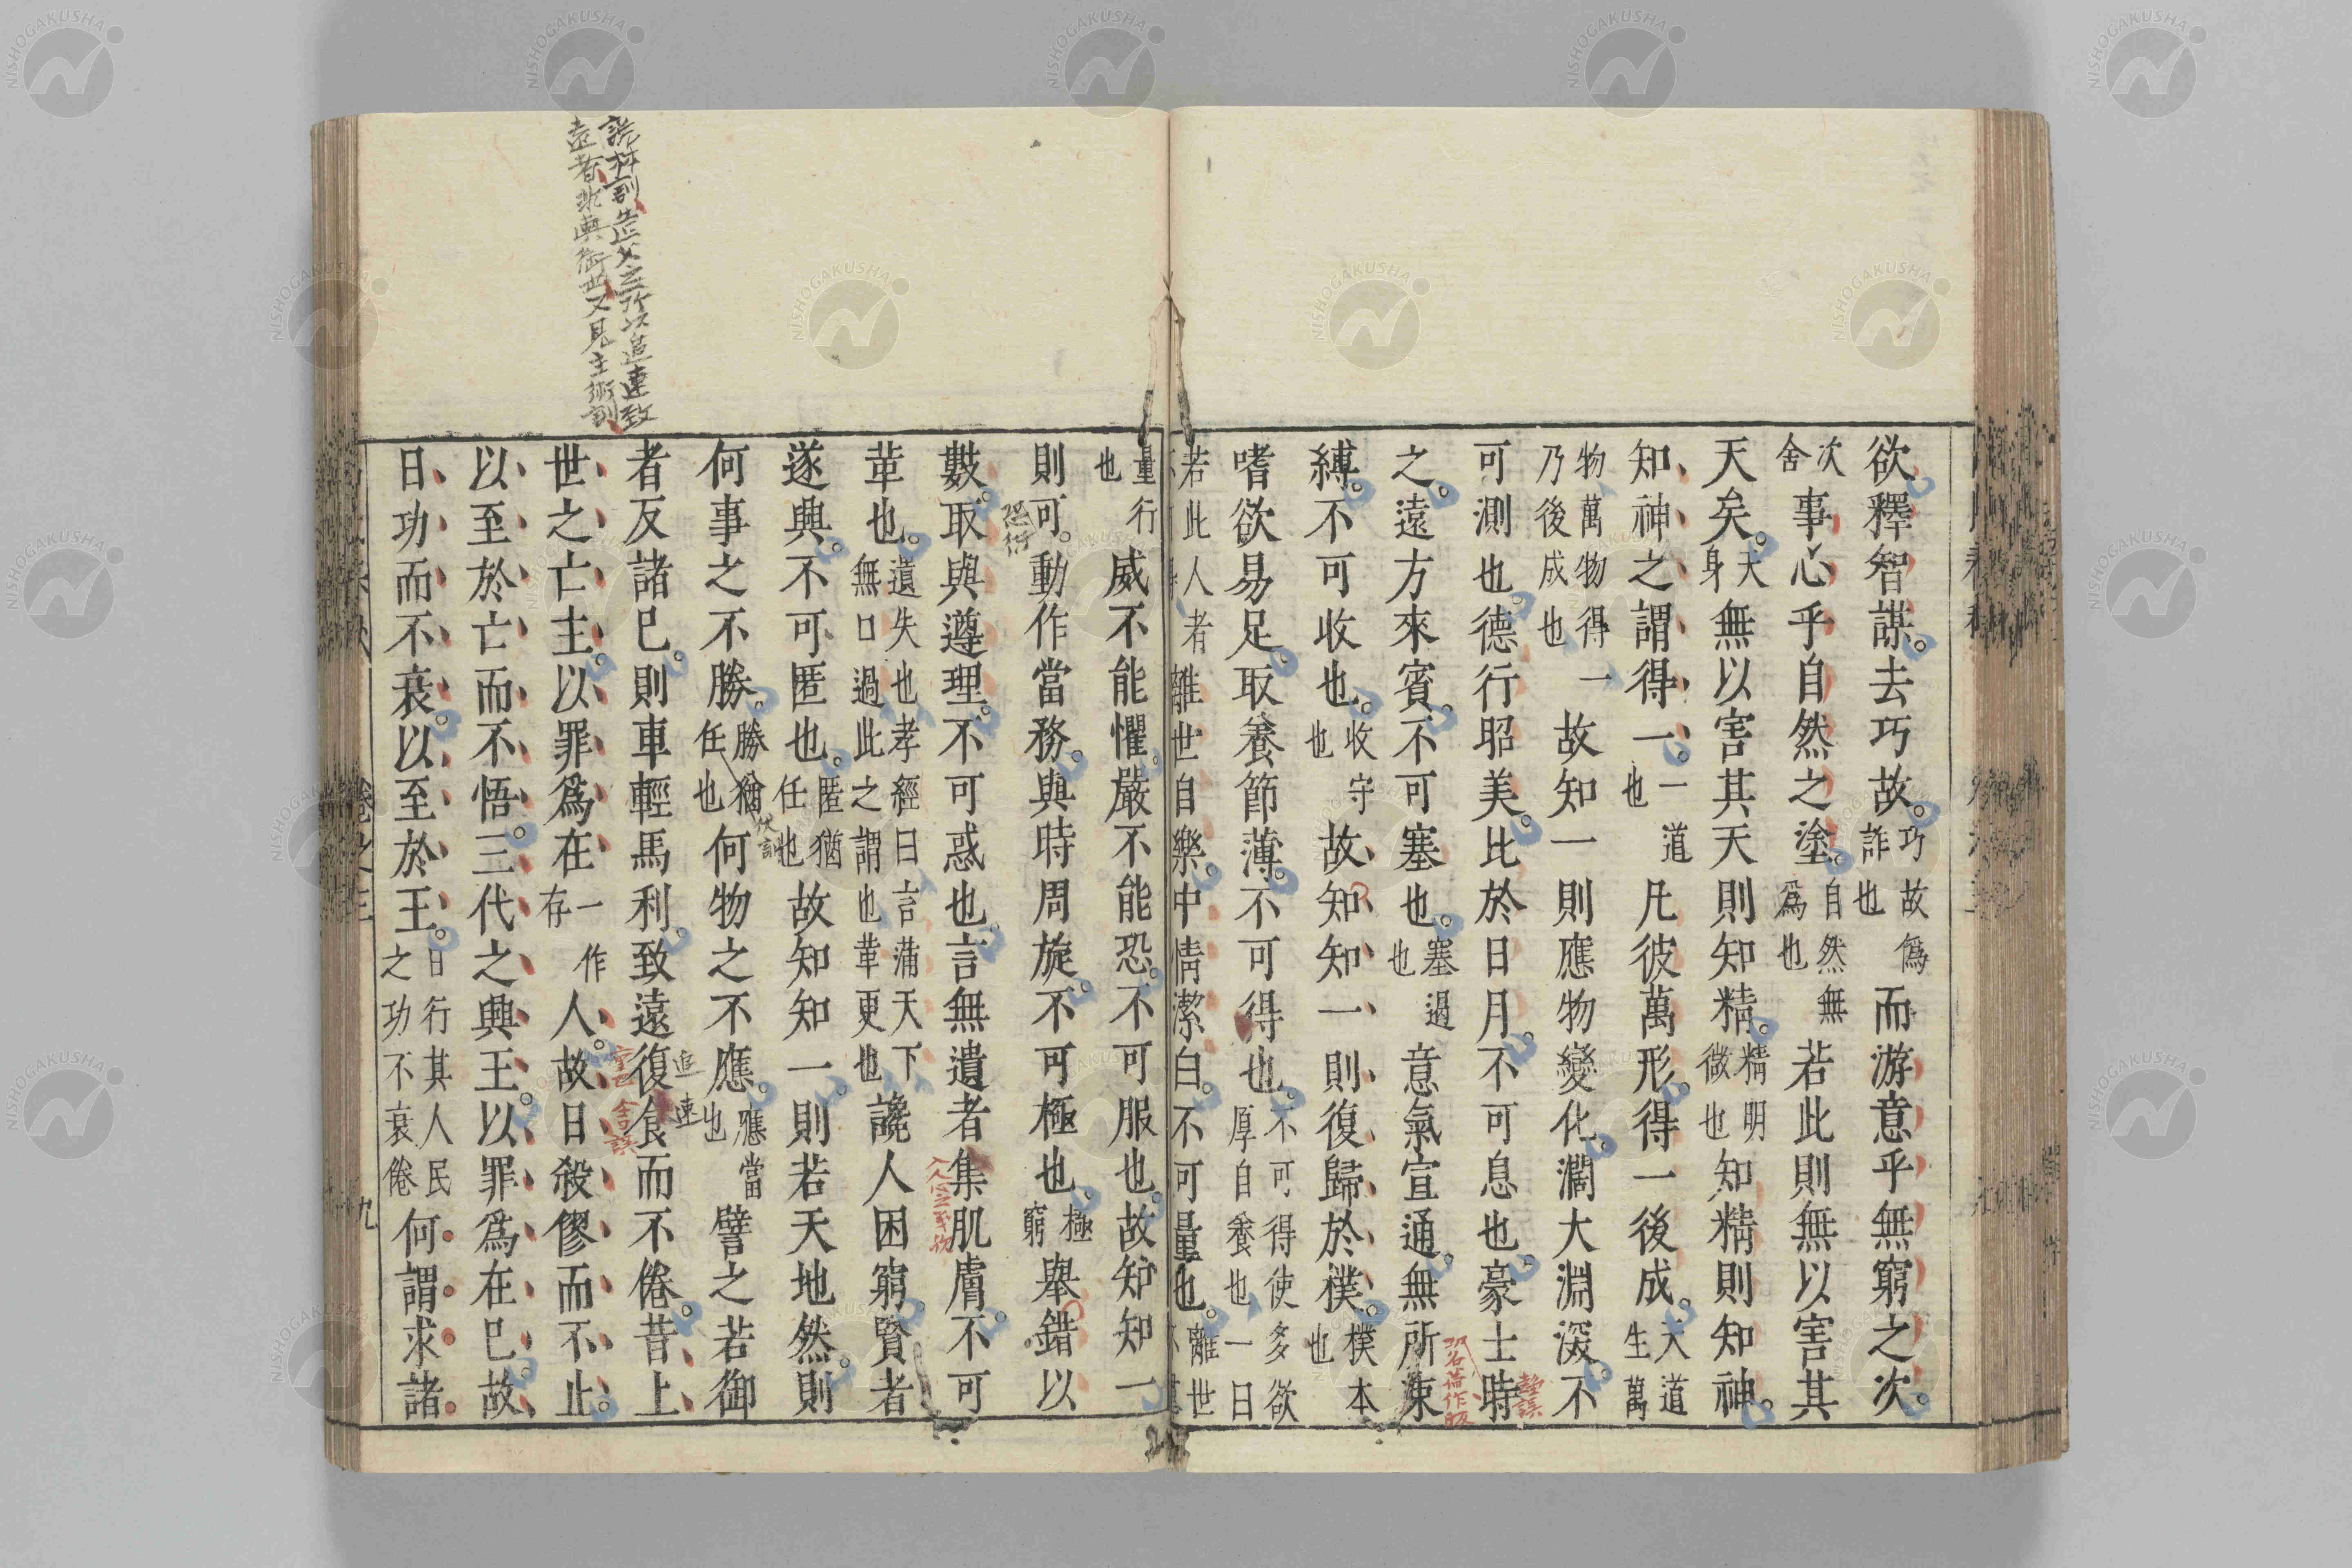 欲釋智謀。去巧故。巧故僞詐也而游意乎無窮之次。
次舍事心乎自然之塗。自然無爲也若此則無以害其
天矣。天身無以害其天則知精。精明微也知精則知神。
知神之謂得一。一道也凡彼萬形。得一後成。天道生萬
物萬物得一乃後成也故知一則應物變化。濶大淵深。不
可測也。德行昭美。比於日月。不可息也。豪士時
之。遠方來賓。不可塞也。塞遏也意氣宣通。無所束
縛。不可收也。收守也故知知一則復歸於樸。樸本也
嗜欲易足。取養節薄。不可得也。不可得使多欲厚自養也一曰
若此人者離世自樂。中情潔白。不可量也。離世
量行也威不能懼。嚴不能恐。不可服也。故知知一
則可。動作當務。與時周旋。不可極也。極窮舉錯以
數。取與遵理。不可惑也。言無遺者集肌膚。不可
革也。遺失也孝經曰言蒲天下無口過此之謂也革更也讒人困窮。賢者
遂興。不可匿也。匿猶任也故知知一。則若天地然。則
何事之不勝。勝猶任也何物之不應。應當也譬之若御
者反諸已。則車輕馬利。致遠復食而不倦。昔上
世之亡主。以罪爲在一作存人。故日殺僇而不止。
以至於亡而不悟。三代之興王。以罪爲在已。故
日功而不衰。以至於王。日行其人民之功不衰倦何謂求諸
卷之三
九
說林訓造父之所以追速致
遠者非輿銜也又見主術訓
恐衍
追速